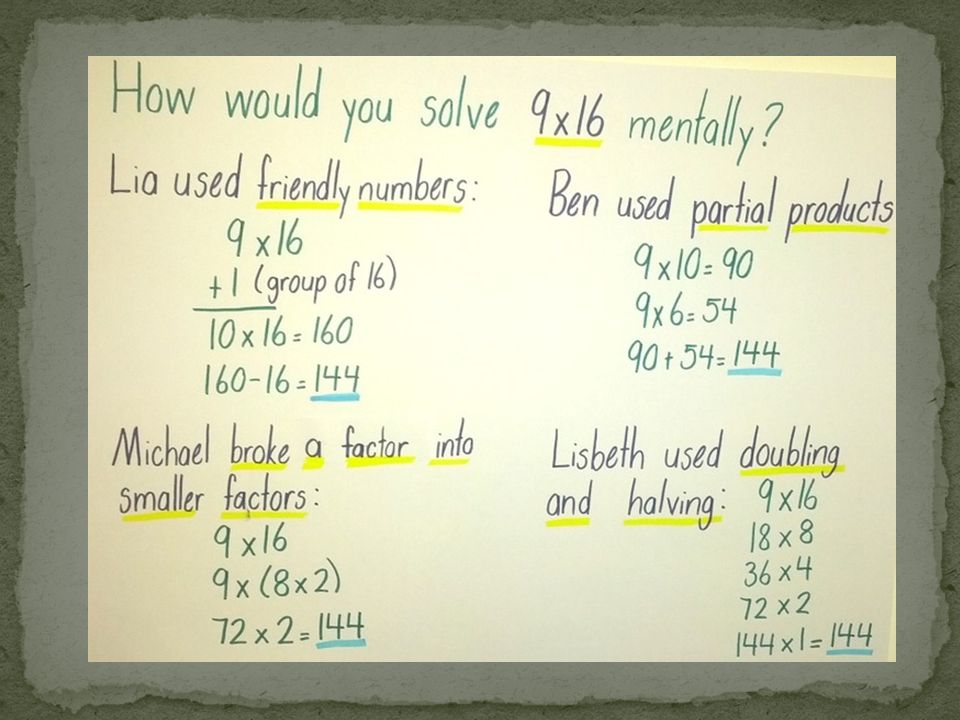 How would you solve 9x16 mentally?
Lia used friendly numbers:
9 x 16
+ 1 (group of 16)
10 x 16 = 160
160 - 16 = 144
Ben used partial products
9 x 10 = 90
9 x 6 = 54
90 + 54 = 144
Michael broke a factor into
smaller factors:
9 x 16
9 x (8 x 2)
72 x 2 = 144
Lisbeth used doubling
and halving: 9 x 16
18 x 8
36 x 4
72 x 2
144 x 1 = 144